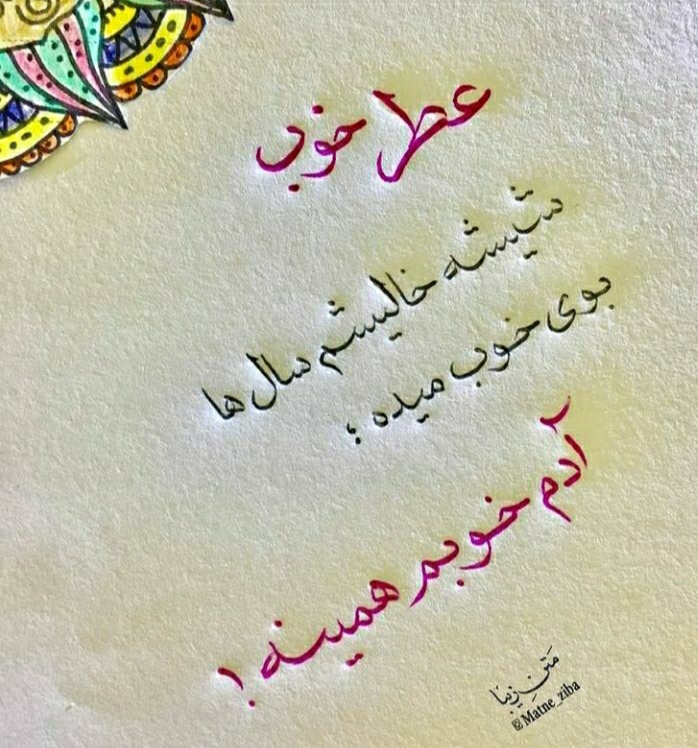 عطر خوب
شیشه خالیشم سال ها
بوی خوب میده ؛
آدم خوبم همینه !
مَتنِ زیبا
@Matne_ziba